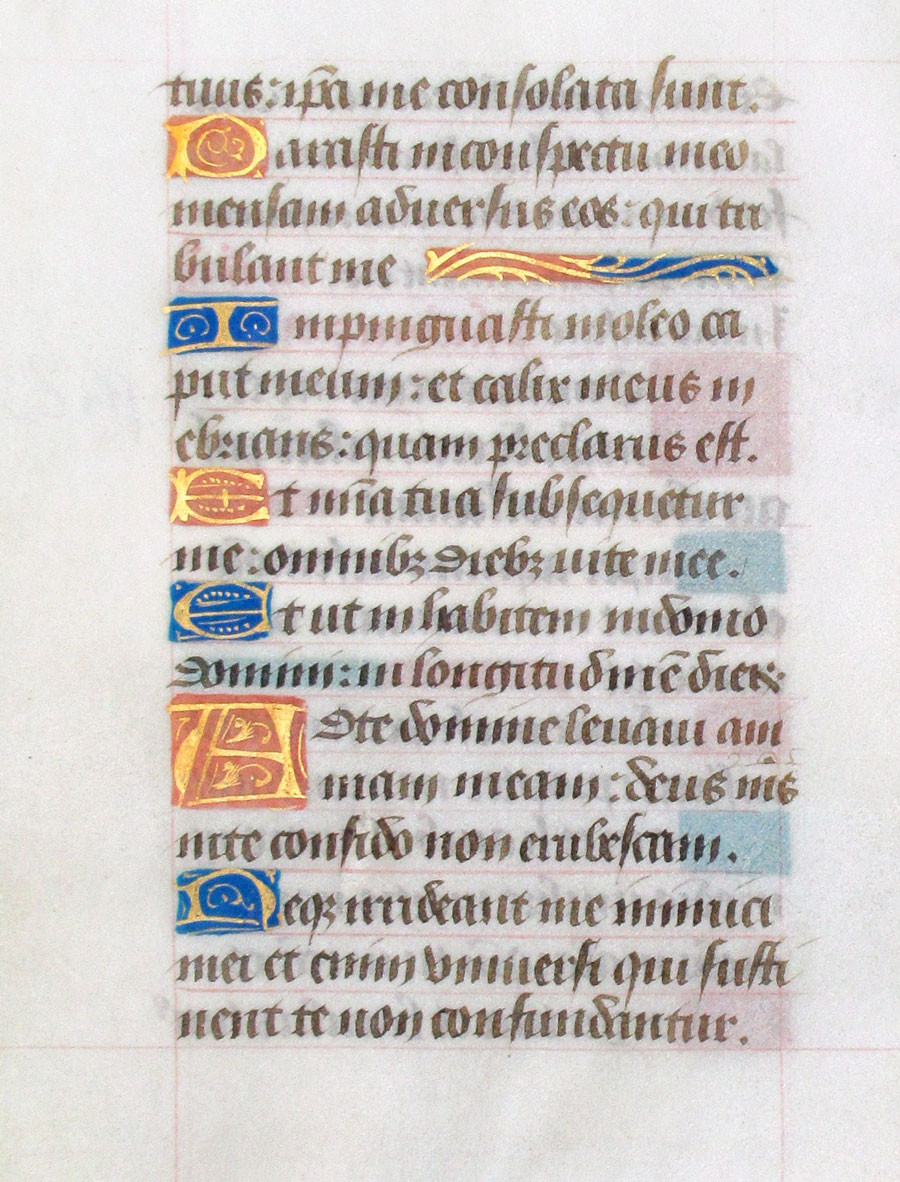 tuus: ip̃a me consolata sunt.
Parasti in conspectu meo
mensam aduersus eos: qui tri
bulant me
Inpinguasti in oleo ca
put meum: et calix meus in
ebrians: quam preclarus est.
Et mĩa tua subsequetur
me: omnibꝫ diebꝫ uite mee.
Et ut inhabitem in domo
domini: in longitudinẽ dieꝝ
Ad te domine leuaui ani
mam meam: deus m̃s
in te confido non erubescam.
Neqꝫ irrideant me inimici
mei et enim vniuersi qui susti
nent te non confundantur.